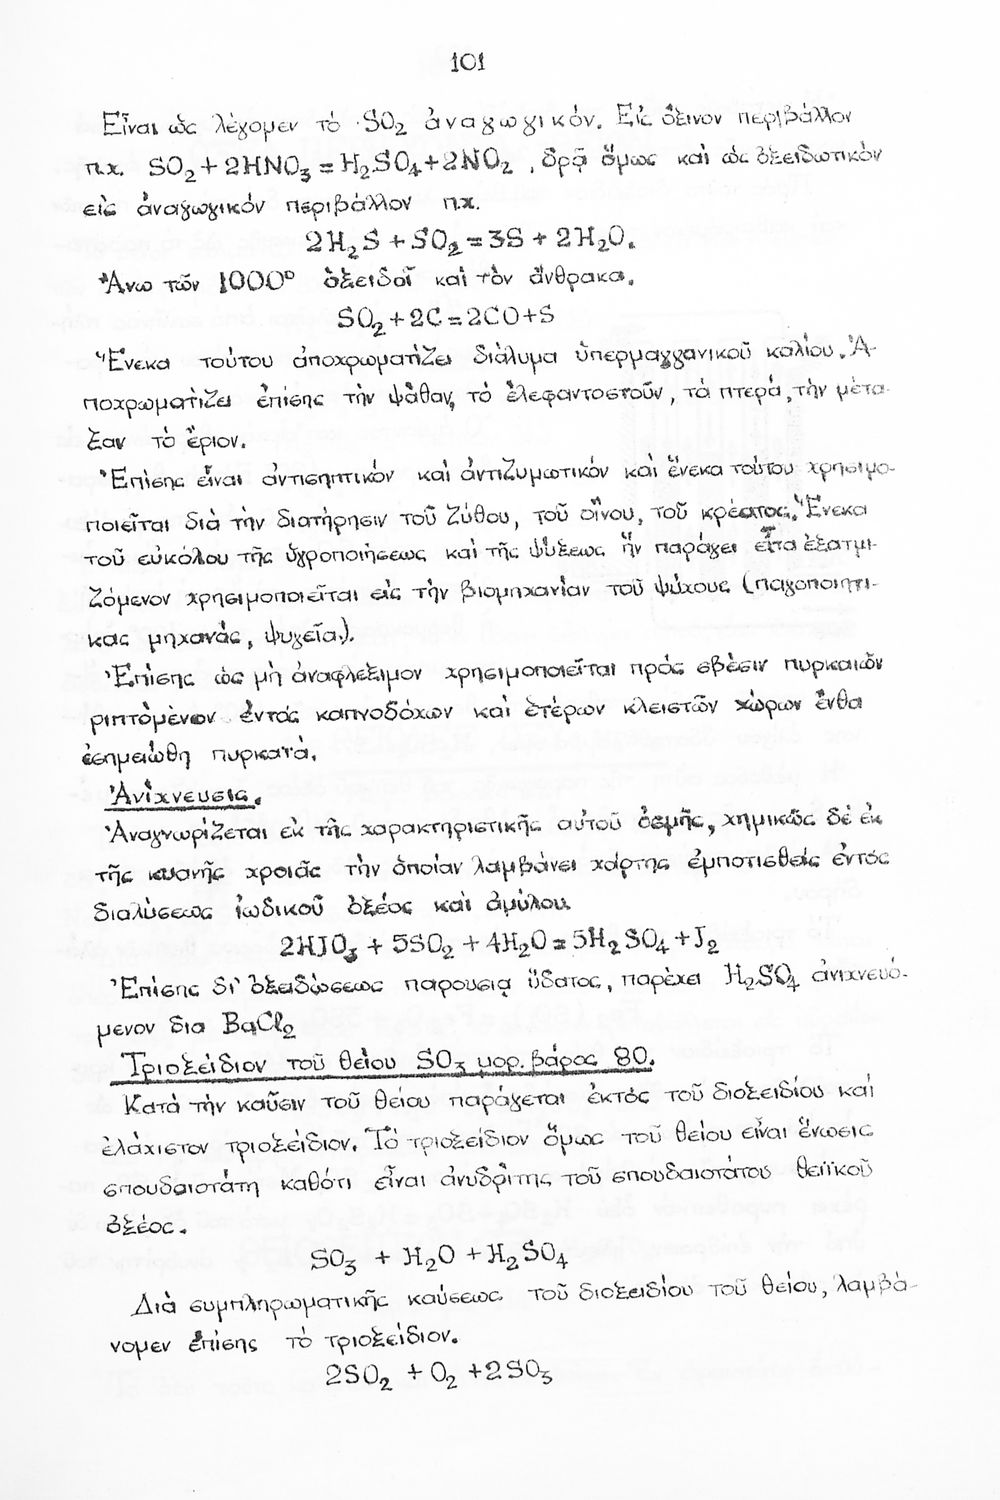 101
Εἶναι ὡς λέγομεν τὸ SO₂ ἀναγωγικόν. Εἰς ὄξινον περιβάλλον
π.χ. SO₂ + 2HNO₃ = H₂SO₄ + 2NO₂ , δρᾷ ὅμως καὶ ὡς ὀξειδωτικὸν
εἰς ἀναγωγικόν περιβάλλον π.χ.
2H₂S + SO₂ = 3S + 2H₂O.
Ἄνω τῶν 1000° ὀξειδοῖ καὶ τὸν ἄνθρακα.
SO₂ + 2C = 2CO + S
Ἕνεκα τούτου ἀποχρωματίζει διάλυμα ὑπερμαγγανικοῦ καλίου. Ἀ-
ποχρωματίζει ἐπίσης τὴν ψάθαν, τὸ ἐλεφαντοστοῦν, τὰ πτερά, τὴν μέτα-
ξαν τὸ ἔριον.
Ἐπίσης εἶναι ἀντισηπτικόν καὶ ἀντιζυμωτικόν καὶ ἕνεκα τούτου χρησιμο-
ποιεῖται διὰ τὴν διατήρησιν τοῦ ζύθου, τοῦ οἴνου, τοῦ κρέατος. Ἕνεκα
τοῦ εὐκόλου τῆς ὑγροποιήσεως καὶ τῆς ψύξεως ἥν παράγει εἶτα ἐξατμι-
ζόμενον χρησιμοποιεῖται εἰς τὴν βιομηχανίαν τοῦ ψύχους (παγοποιητι-
κας μηχανάς, ψυγεῖα).
Ἐπίσης ὡς μὴ ἀναφλέξιμον χρησιμοποιεῖται πρὸς σβέσιν πυρκαιῶν
ριπτόμενον ἐντός καπνοδόχων καὶ ἑτέρων κλειστῶν χώρων ἔνθα
ἐσημειώθη πυρκαϊά.
Ἀνίχνευσις.
Ἀναγνωρίζεται ἐκ τῆς χαρακτηριστικῆς αὐτοῦ ὀσμῆς, χημικῶς δὲ ἐκ
τῆς κυανῆς χροιᾶς τὴν ὁποίαν λαμβάνει χάρτης ἐμποτισθείς ἐντός
διαλύσεως ἰωδικοῦ ὀξέος καὶ ἀμύλου.
2HJO₃ + 5SO₂ + 4H₂O = 5H₂SO₄ + J₂
Ἐπίσης δι' ὀξειδώσεως παρουσίᾳ ὕδατος, παρέχει H₂SO₄ ἀνιχνευό-
μενον δια BaCl₂
Τριοξείδιον τοῦ θείου SO₃ μορ. βάρος 80.
Κατὰ τὴν καῦσιν τοῦ θείου παράγεται ἐκτός τοῦ διοξειδίου καὶ
ἐλάχιστον τριοξείδιον. Τὸ τριοξείδιον ὅμως τοῦ θείου εἶναι ἕνωσις
σπουδαιοτάτη καθότι εἶναι ἀνυδρίτης τοῦ σπουδαιοτάτου θειϊκοῦ
ὀξέος.
SO₃ + H₂O + H₂SO₄
Διὰ συμπληρωματικῆς καύσεως τοῦ διοξειδίου τοῦ θείου, λαμβά-
νομεν ἐπίσης τὸ τριοξείδιον.
2SO₂ + O₂ + 2SO₃